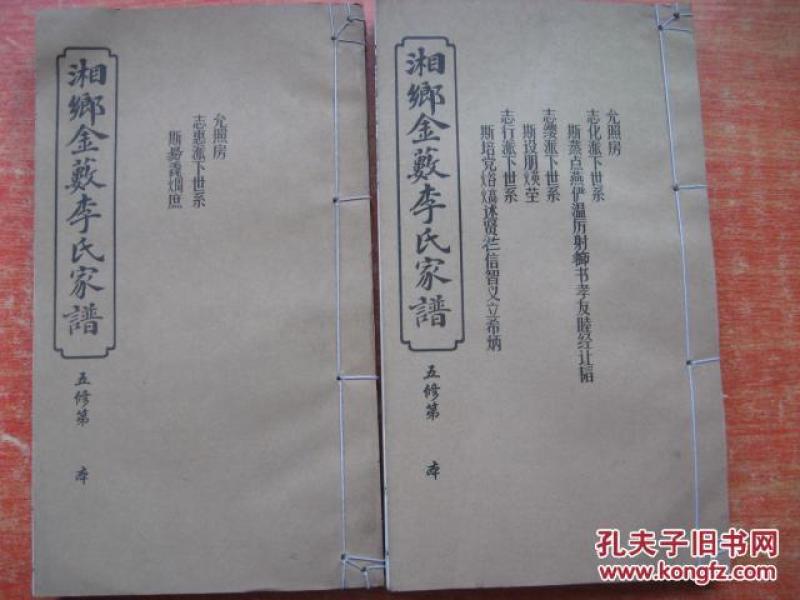 湘鄉金藪李氏家譜
五修第 本
允照房
志惠派下世系
斯
湘鄉金藪李氏家譜
五修第 本
允照房
志化派下世系
斯蒸点燕伊温历射狮书孝友睦经让
志缨派下世系
斯设朋焕莹
志行派下世系
斯培党焰述贤兰信智义立希炳
孔夫子旧书网
www.kongfz.com